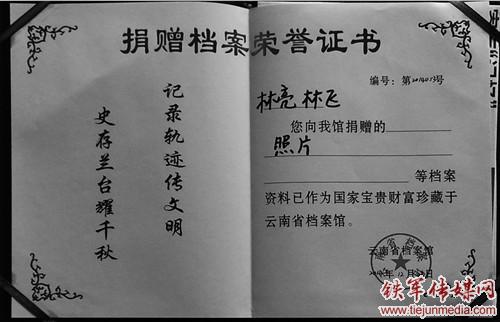 捐赠档案荣誉证书
记录轨迹传文明
史存兰台耀千秋
编号：第2014013号
林亮 林飞
您向我馆捐赠的
照片
等档案
资料已作为国家宝贵财富珍藏于
云南省档案馆。
云南省档案馆
年12月
铁军传媒网
www.tiejunmedia.com